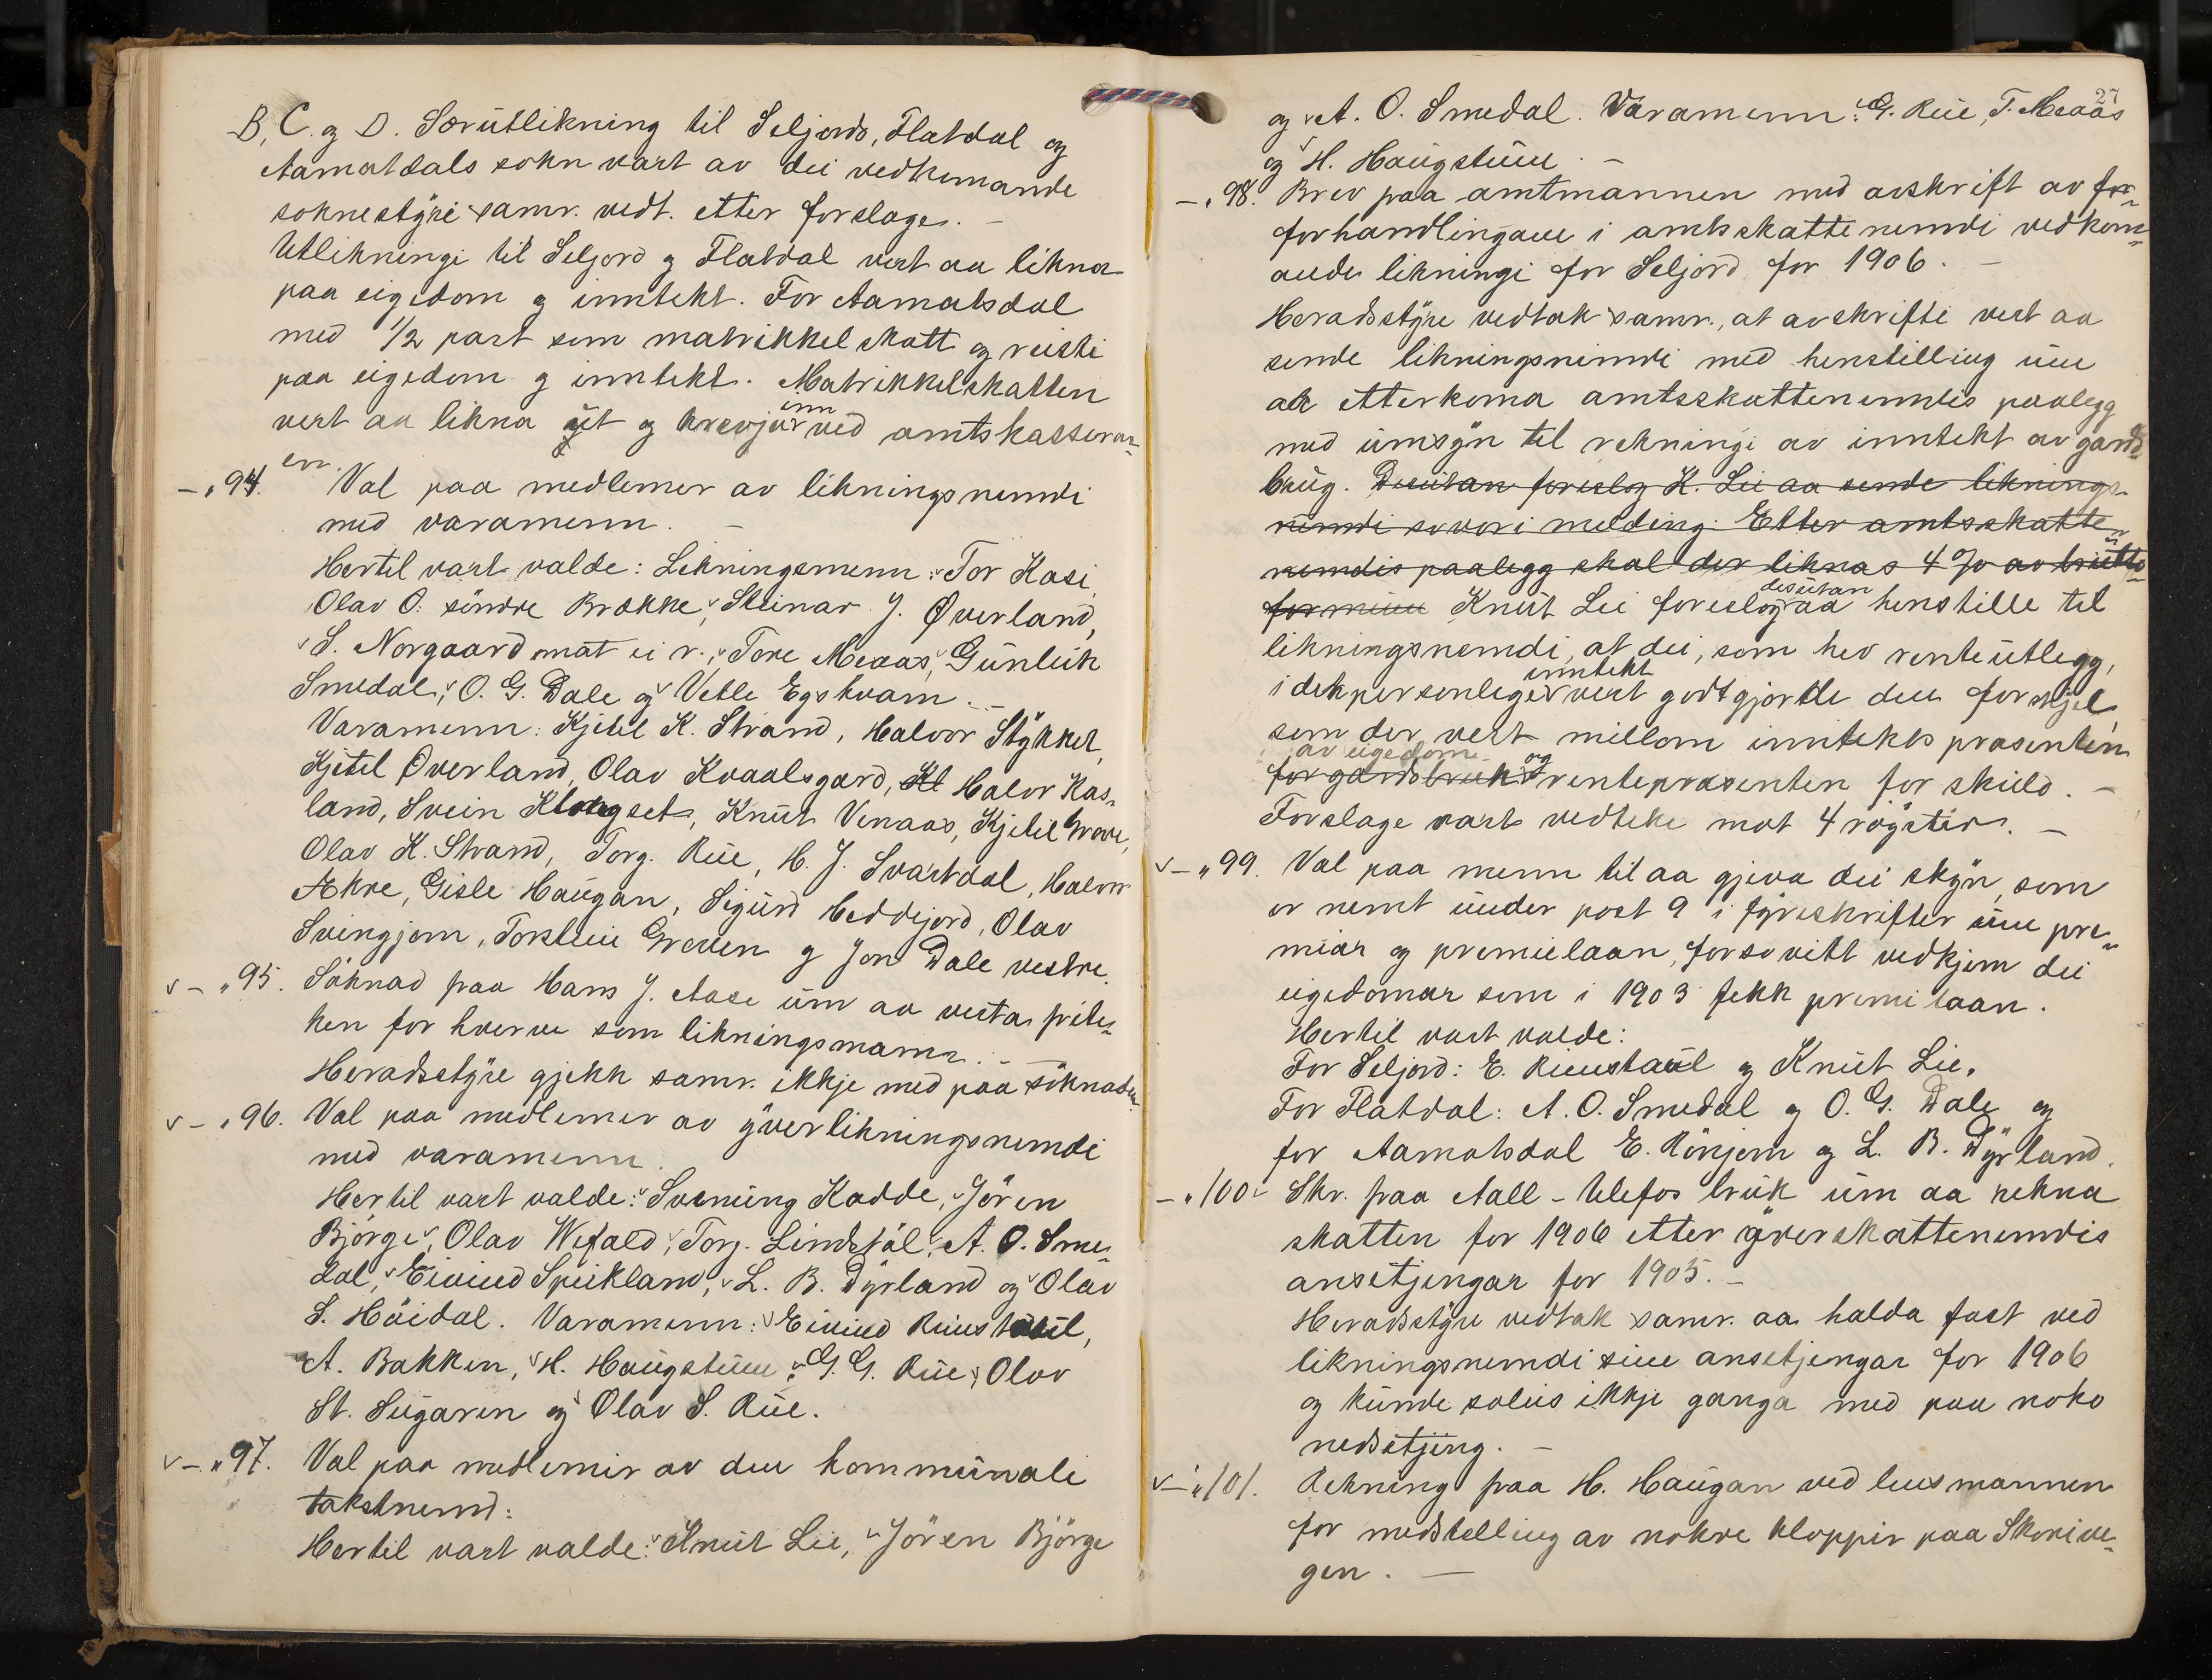 B, C. og D. Særutlikning til Seljords, Flatdal og
Aamotsdals sokn vart av dei vedkomande
soknestyri samr. vedt. etter forslage. –
Utlikningi til Seljord og Flatdal vert aa likna
paa eigedom og inntekt. For Aamotsdal
med 1/2 part som matrikkelskatt og reisti
paa eigedom og inntekt. Matrikkelskatten
inn
vert aa likna ut og krevja ved amtskasserar-
en.
– „ 94. Val paa medlemer av likningsnemdi
med varamenn. –
Hertil vart valde: Likningsmenn: Tor Kasi,
Olav O. söndre Brække, Steinar J. Øverland,
S. Norgaard mot ei r., Tore Meaas, Gunleik
Smedal, O. G. Dale og Vetle Egstveam. –
Varamenn: Kjetil K. Strand, Halvor Stykket,
Kjetil Överland, Olav Kvaalsgard, Kl Halvor Kas-
land, Svein Klongset, Knut Venaas, Kjetil Grave,
Olav K. Strand, Torg. Rue, H. J. Svartdal, Halvor
Aekre, Gisle Haugan, Sigurd Heddejord, Olav
Svingjom, Torstein Greven og Jon Dale vestre.
v – „ 95. Söknad fraa Hans J. Aase um aa verta friteken
ken for hverve som likningsmann. –
Heradsstyre gjekk samr. ikkje med paa söknaden.
v – „ 96. Val paa medlemer av yverlikningsnemdi
med varamenn.
Hertil vart valde: Svenung Kadde, Jören
Björge, Olav Wefald, Torg. Lindstöl, A. O. Sme-
dal, Eivind Speikland, L. B. Dyrland og Olav
S. Höidal. Varamenn: Eivind Riustaul,
A. Bakken, H. Haugstuen, G. G. Rue, Olav
St. Sugaren og Olav S. Rue.
v – „ 97. Val paa medlemir av den kommunali
takstnemd:
Hertil vart valde: Knut Lie, Jören Björge
27
og A. O. Smedal. Varamenn: G. Rue, T. Meaas
og H. Haugstuen. –
– „ 98. Brev fraa amtmannen med avskrift av for-
forhandlingane i amtsskattenemdi vedkom-
ande likningi for Seljord for 1906. –
Heradsstyre vedtok samr., at avskrifti vert aa
sende likningsnemdi med henstilling um
at etterkoma amtsskattenemdis paalegg
med umsyn til rekningi av inntekt av gards-
brug. Desutan foreslog K. Lie aa sende liknings-
nemdi sovori melding: Etter amtsskatte-
nemdis paalegg skal der liknas 4 % av brutto-
desutan
formuen Knut Lie foreslog aa henstille til
likningsnemdi, at dei, som hev renteutlegg,
inntekt
i dek personlege vert godtgjorde den forskjel,
som der vert millom inntekts prosenten
av eigedom og
for gardsbruk renteprosenten for skuld. –
Forslage vart vedteke mot 4 röystir. –
v – „ 99. Val paa menn til aa gjeva dei skyn, som
er nemt under post 9 i fyreskrifter um pre-
miar og premielaan, forsovitt vedkjem dei
eigedomar som i 1903 fekk premilaan.
Hertil vart valde:
For Seljord: E. Riustaul og Knut Lie.
For Flatdal: A. O. Smedal og O. G. Dale og
for Aamotsdal E. Rönjom og L. B. Dyrland.
– „ 100. Skr. fraa Aall-Ulefos bruk um aa rekna
skatten for 1906 etter yverskattenemdis
ansetjingar for 1905. –
Heradsstyre vedtok samr. aa halda fast ved
likningsnemdi sine ansetjingar for 1906
og kunde soleis ikkje ganga med paa noko
nedsetjing. –
v – „ 101. Rekning fraa H. Haugan ved lensmannen
for nedstelling av nokre kloppir paa Skorive-
gen. –